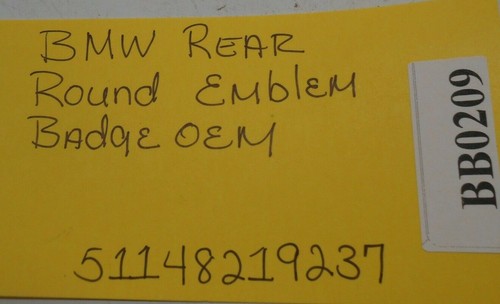 BMW REAR
Round EmblEM
BAdgE OEM
BB0209
51148219237